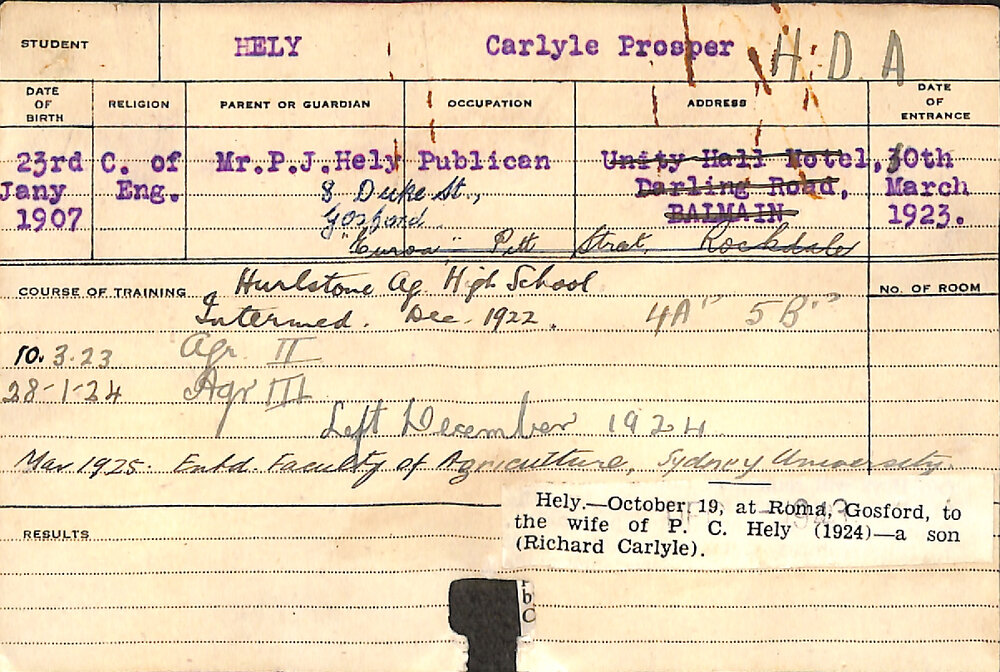 STUDENT HELY Carlyle Prosper H.D.A
DATE OF BIRTH RELIGION PARENT OR GUARDIAN OCCUPATION ADDRESS DATE OF ENTRANCE
23rd C. of Mr.P.J.Hely Publican Unity Hall Hotel, 10th
Jany Eng. 8 Duke St., Darling Road, March
1907 Gosford BALMAIN 1923.
Pitt Street Rockdale
COURSE OF TRAINING Hurlstone Ag. High School NO. OF ROOM
Intermed. Dec. 1922. 4A's 5B's
10.3.23 Agr. II
28-1-24 Agr III
Left December 1924
Mar 1925. Entd. Faculty of Agriculture, Sydney University.
RESULTS
Hely.—October 19, at Roma, Gosford, to
the wife of P. C. Hely (1924)—a son
(Richard Carlyle).
b
C